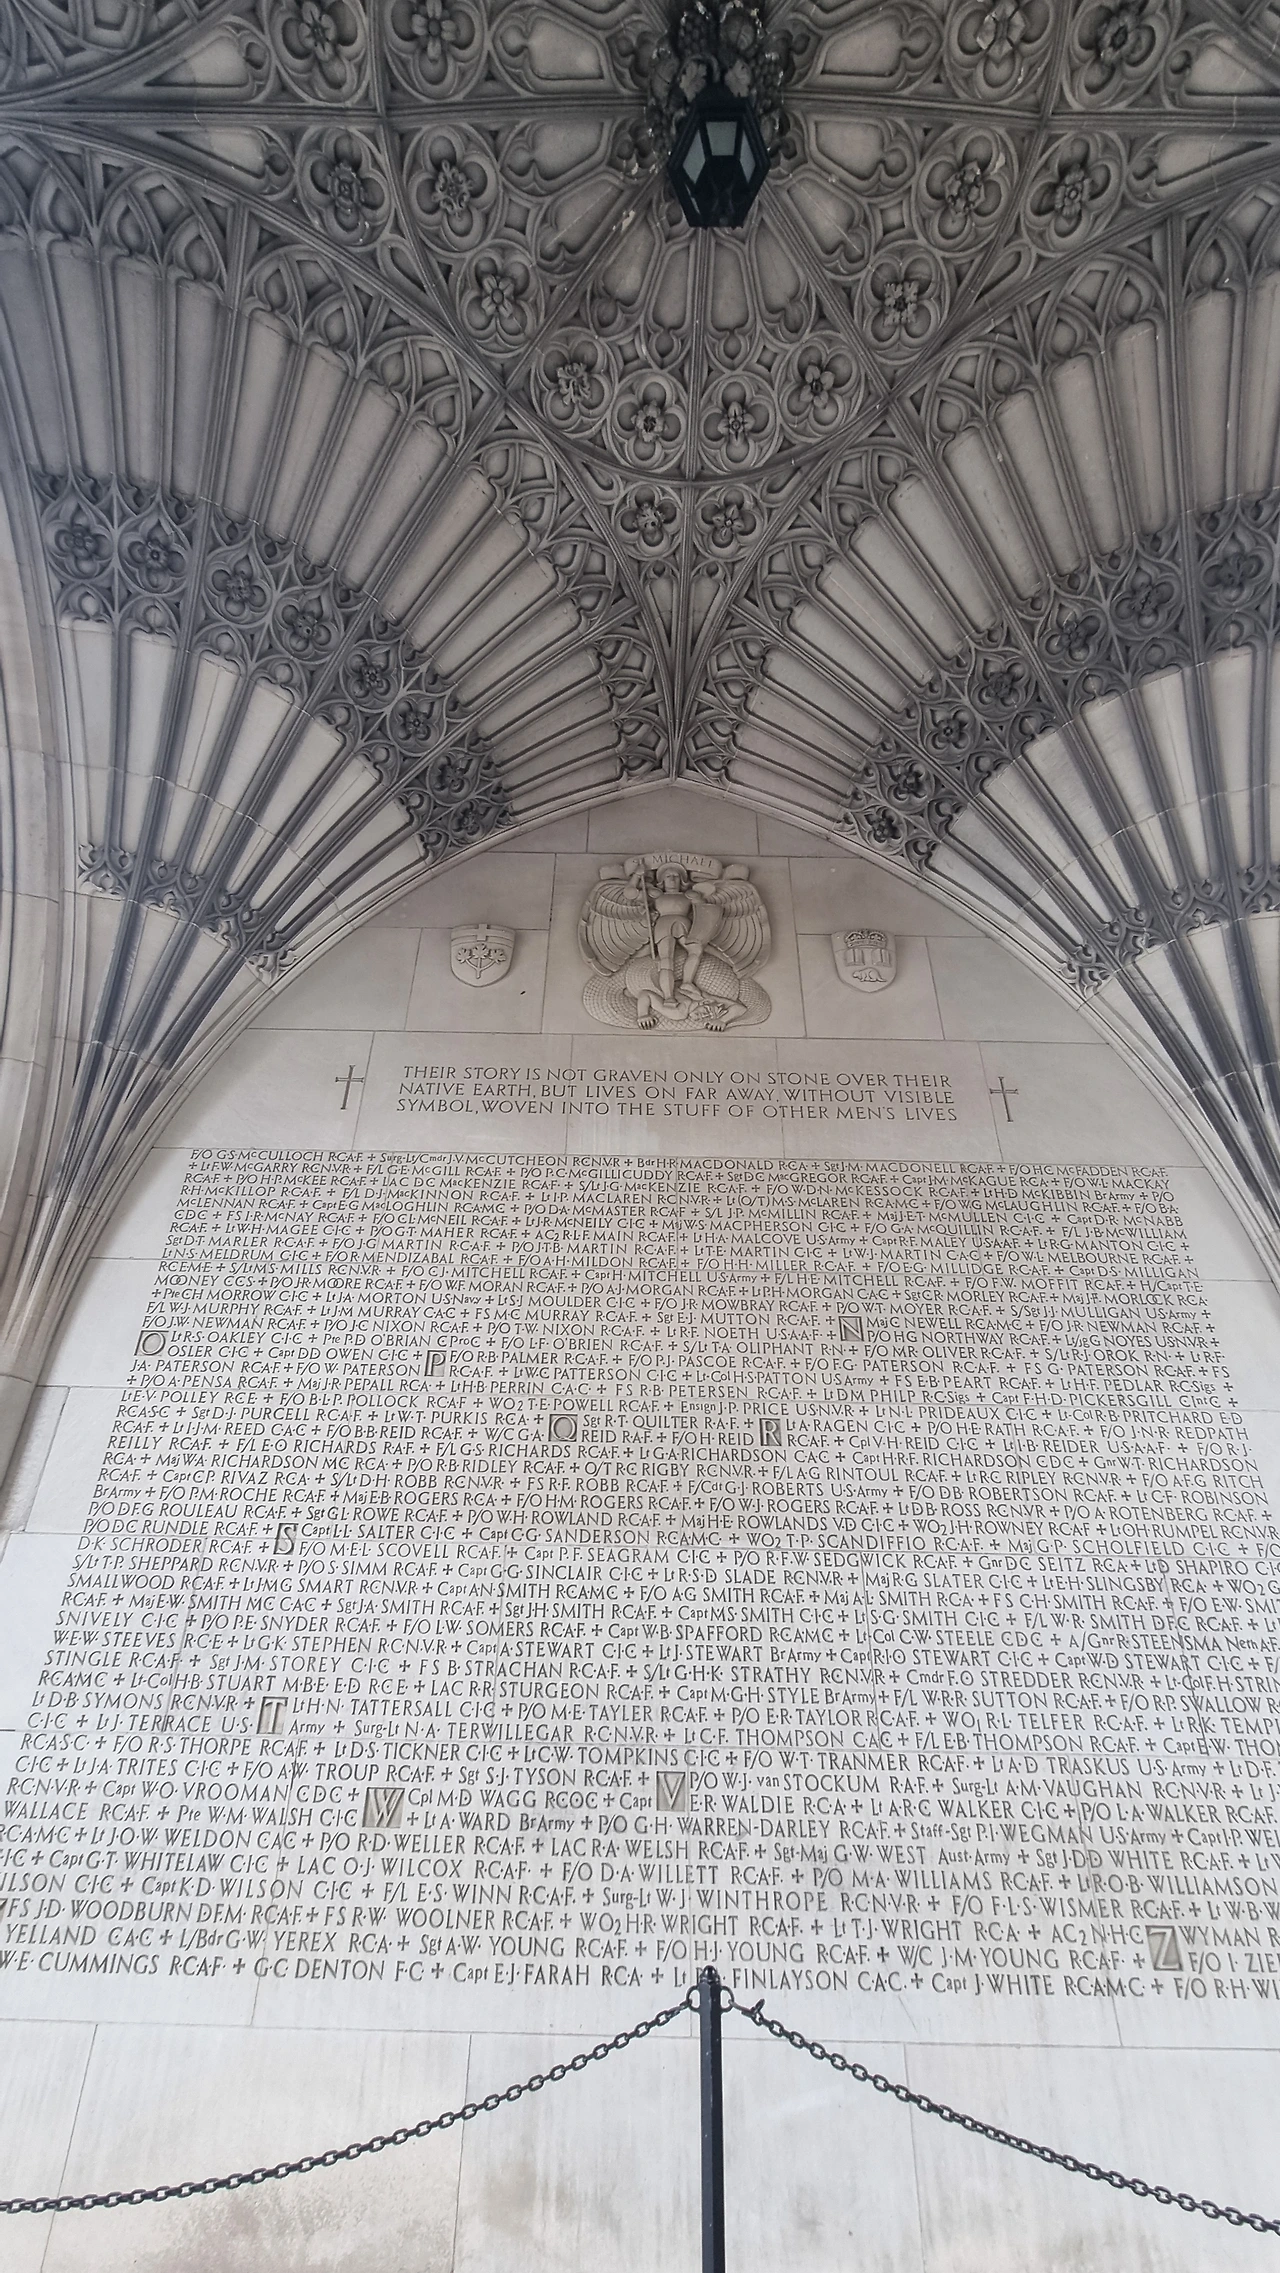 ST MICHAEL
THEIR STORY IS NOT GRAVEN ONLY ON STONE OVER THEIR
NATIVE EARTH, BUT LIVES ON FAR AWAY, WITHOUT VISIBLE
SYMBOL, WOVEN INTO THE STUFF OF OTHER MEN'S LIVES
F/O G·S·McCULLOCH R·C·A·F· + Surg-Lt/Cmdr J·V·McCUTCHEON R·C·N·V·R + Bdr H·R·MACDONALD R·C·A + Sgt J·M·MACDONELL R·C·A·F· + F/O H·C·McFADDEN R·C·A·F·
+ Lt F·W·McGARRY R·C·N·V·R + F/L G·E·McGILL R·C·A·F· + P/O P·C·McGILLICUDDY R·C·A·F· + Sgt D·C·MacGREGOR R·C·A·F· + Capt J·M·McKAGUE R·C·A + F/O W·L·MACKAY
R·C·A·F· + P/O H·P·McKEE R·C·A·F· + LAC D·C·MacKENZIE R·C·A·F· + S/Lt J·G·MacKENZIE R·C·A·F· + F/O W·D·N·McKESSOCK R·C·A·F· + Lt H·D·McKIBBIN Br Army + P/O
R·H·McKILLOP R·C·A·F· + F/L D·J·MacKINNON R·C·A·F· + Lt I·P·MACLAREN R·C·N·V·R + Lt(O/T) M·S·McLAREN R·C·E·M·E + F/O W·G·McLAUGHLIN R·C·A·F· + F/O B·A·
McLENNAN R·C·A·F· + Capt E·G·MacLOGHLIN R·C·A·M·C + P/O D·A·McMASTER R·C·A·F· + S/L J·P·McMILLIN R·C·A·F· + Maj J·E·T·McMULLEN C·I·C + Capt D·R·McNABB
C·D·C + FS I·R·McNAY R·C·A·F· + F/O C·L·McNEIL R·C·A·F· + Lt J·R·McNEILY C·I·C + Maj W·S·MACPHERSON C·I·C + F/O G·A·McQUILLIN R·C·A·F· + F/L J·B·McWILLIAM
R·C·A·F· + Lt W·H·MAGEE C·I·C + P/O G·T·MAHER R·C·A·F· + AC2 R·L·F·MAIN R·C·A·F· + Lt H·A·MALCOVE U·S·Army + Capt R·F·MALEY U·S·A·A·F· + Lt R·G·MANTON C·I·C +
Sgt D·T·MARLER R·C·A·F· + F/O G·J·MARTIN R·C·A·F· + P/O J·T·B·MARTIN R·C·A·F· + Lt T·E·MARTIN C·I·C + Lt W·J·MARTIN C·A·C + F/O W·L·MELBOURNE R·C·A·F· +
Lt N·S·MELDRUM C·I·C + F/O R·MENDIZABAL R·C·A·F· + F/O A·H·MILDON R·C·A·F· + F/O H·H·MILLER R·C·A·F· + F/O E·G·MILLIDGE R·C·A·F· + Capt D·S·MILLIGAN
R·C·E·M·E + S/Lt M·S·MILLS R·C·N·V·R + F/O C·J·MITCHELL R·C·A·F· + Capt H·MITCHELL U·S·Army + F/L H·E·MITCHELL R·C·A·F· + F/O F·W·MOFFIT R·C·A·F· + H/Capt T·E·
MOONEY C·C·S + P/O J·R·MOORE R·C·A·F· + F/O W·F·MORAN R·C·A·F· + P/O A·J·MORGAN R·C·A·F· + Lt P·H·MORGAN C·A·C + Sgt C·R·MORLEY R·C·A·F· + Maj J·F·MORLOCK R·C·A·
+ Pte C·H·MORROW C·I·C + Lt J·A·MORTON U·S·Navy + Lt S·J·MOULDER C·I·C + F/O J·R·MOWBRAY R·C·A·F· + P/O W·T·MOYER R·C·A·F· + S/Sgt J·J·MULLIGAN U·S·Army +
F/L W·J·MURPHY R·C·A·F· + Lt J·M·MURRAY C·A·C + FS M·C·MURRAY R·C·A·F· + Sgt E·J·MUTTON R·C·A·F· + N Maj C·NEWELL R·C·A·M·C + F/O J·R·NEWMAN R·C·A·F· +
F/O J·W·NEWMAN R·C·A·F· + P/O J·C·NIXON R·C·A·F· + P/O T·W·NIXON R·C·A·F· + Lt R·F·NOETH U·S·A·A·F· + P/O H·G·NORTHWAY R·C·A·F· + Lt/jg G·NOYES U·S·N·V·R +
O Lt R·S·OAKLEY C·I·C + Pte P·D·O'BRIAN C·Pro·C + F/O L·F·O'BRIEN R·C·A·F· + S/Lt T·A·OLIPHANT R·N + F/O M·R·OLIVER R·C·A·F· + S/Lt R·J·OROK R·N + Lt R·F·
OSLER C·I·C + Capt D·D·OWEN C·I·C + P F/O R·B·PALMER R·C·A·F· + F/O P·J·PASCOE R·C·A·F· + F/O F·G·PATERSON R·C·A·F· + FS G·PATERSON R·C·A·F· + FS
J·A·PATERSON R·C·A·F· + F/O W·PATERSON R·C·A·F· + Lt W·C·PATTERSON C·I·C + Lt-Col H·S·PATTON U·S·Army + FS E·B·PEART R·C·A·F· + Lt H·F·PEDLAR R·C·Sigs +
+ P/O A·PENSA R·C·A·F· + Maj J·R·PEPALL R·C·A + Lt H·B·PERRIN C·A·C + FS R·B·PETERSEN R·C·A·F· + Lt D·M·PHILP R·C·Sigs + Capt F·H·D·PICKERSGILL C·Int·C +
Lt E·V·POLLEY R·C·E + F/O B·L·P·POLLOCK R·C·A·F· + WO2 T·E·POWELL R·C·A·F· + Ensign J·P·PRICE U·S·N·V·R + Lt N·L·PRIDEAUX C·I·C + Lt-Col R·B·PRITCHARD E·D
R·C·A·S·C + Sgt D·J·PURCELL R·C·A·F· + Lt W·T·PURKIS R·C·A + Q Sgt R·T·QUILTER R·A·F· + R Lt A·RAGEN C·I·C + P/O H·E·RATH R·C·A·F· + F/O J·N·R·REDPATH
R·C·A·F· + Lt I·J·M·REED C·A·C + F/O B·B·REID R·C·A·F· + W/C G·A· REID R·A·F· + F/O H·REID R·C·A·F· + Cpl V·H·REID C·I·C + Lt I·B·REIDER U·S·A·A·F· + F/O R·J·
REILLY R·C·A·F· + F/L E·O·RICHARDS R·A·F· + F/L G·S·RICHARDS R·C·A·F· + Lt G·A·RICHARDSON C·A·C + Capt H·R·F·RICHARDSON C·D·C + Gnr W·T·RICHARDSON
R·C·A + Maj W·A·RICHARDSON M·C R·C·A + P/O R·B·RIDLEY R·C·A·F· + O/T R·C·RIGBY R·C·N·V·R + F/L A·G·RINTOUL R·C·A·F· + Lt R·C·RIPLEY R·C·N·V·R + F/O A·F·G·RITCH
R·C·A·F· + Capt C·P·RIVAZ R·C·A + S/Lt D·H·ROBB R·C·N·V·R + FS R·F·ROBB R·C·A·F· + F/Cdt G·J·ROBERTS U·S·Army + F/O D·B·ROBERTSON R·C·A·F· + Lt C·F·ROBINSON
Br Army + F/O P·M·ROCHE R·C·A·F· + Maj E·B·ROGERS R·C·A + F/O H·M·ROGERS R·C·A·F· + F/O W·J·ROGERS R·C·A·F· + Lt D·B·ROSS R·C·N·V·R + P/O A·ROTENBERG R·C·A·F· +
P/O D·F·G·ROULEAU R·C·A·F· + Sgt G·L·ROWE R·C·A·F· + P/O W·H·ROWLAND R·C·A·F· + Maj H·E·ROWLANDS V·D C·I·C + WO2 J·H·ROWNEY R·C·A·F· + Lt O·H·RUMPEL R·C·N·V·R
P/O D·C·RUNDLE R·C·A·F· + S Capt L·L·SALTER C·I·C + Capt C·G·SANDERSON R·C·A·M·C· + WO2 T·P·SCANDIFFIO R·C·A·F· + Maj G·P·SCHOLFIELD C·I·C + F/O
D·K·SCHRODER R·C·A·F· + F/O M·E·L·SCOVELL R·C·A·F· + Capt P·F·SEAGRAM C·I·C + P/O R·F·W·SEDGWICK R·C·A·F· + Gnr D·C·SEITZ R·C·A + Lt D·SHAPIRO C·I·C
S/Lt T·P·SHEPPARD R·C·N·V·R + P/O S·SIMM R·C·A·F· + Capt G·G·SINCLAIR C·I·C + Lt R·S·D·SLADE R·C·N·V·R + Maj R·G·SLATER C·I·C + Lt E·H·SLINGSBY R·C·A + WO2 G
SMALLWOOD R·C·A·F· + Lt J·M·G·SMART R·C·N·V·R + Capt A·N·SMITH R·C·A·M·C + F/O A·G·SMITH R·C·A·F· + Maj A·L·SMITH R·C·A + FS C·H·SMITH R·C·A·F· + F/O E·W·SMIT
R·C·A·F· + Maj E·W·SMITH M·C C·A·C + Sgt J·A·SMITH R·C·A·F· + Sgt J·H·SMITH R·C·A·F· + Capt M·S·SMITH C·I·C + Lt S·G·SMITH C·I·C + F/L W·R·SMITH D·F·C R·C·A·F· + Lt
SNIVELY C·I·C + P/O P·E·SNYDER R·C·A·F· + F/O L·W·SOMERS R·C·A·F· + Capt W·B·SPAFFORD R·C·A·M·C + Lt-Col C·W·STEELE C·D·C + A/Gnr R·STEENSMA Neth A·F·
W·E·W·STEEVES R·C·E + Lt G·K·STEPHEN R·C·N·V·R + Capt A·STEWART C·I·C + Lt J·STEWART Br Army + Capt R·I·O·STEWART C·I·C + Capt W·D·STEWART C·I·C + F/
STINGLE R·C·A·F· + Sgt J·M·STOREY C·I·C + FS B·STRACHAN R·C·A·F· + S/Lt G·H·K·STRATHY R·C·N·V·R + Cmdr F·O·STREDDER R·C·N·V·R + Lt-Col F·H·STRIN
R·C·A·M·C + Lt-Col H·B·STUART M·B·E·E·D R·C·E + LAC R·R·STURGEON R·C·A·F· + Capt M·G·H·STYLE Br Army + F/L W·R·R·SUTTON R·C·A·F· + F/O R·P·SWALLOW R
Lt D·B·SYMONS R·C·N·V·R + T Lt H·N·TATTERSALL C·I·C + P/O M·E·TAYLER R·C·A·F· + P/O E·R·TAYLOR R·C·A·F· + WO1 R·L·TELFER R·C·A·F· + Lt R·K·TEMPL
C·I·C + Lt J·TERRACE U·S· Army + Surg-Lt N·A·TERWILLEGAR R·C·N·V·R + Lt C·F·THOMPSON C·A·C + F/L E·B·THOMPSON R·C·A·F· + Capt E·W·THO
R·C·A·S·C + F/O R·S·THORPE R·C·A·F· + Lt D·S·TICKNER C·I·C + Lt C·W·TOMPKINS C·I·C + F/O W·T·TRANMER R·C·A·F· + Lt A·D·TRASKUS U·S·Army + Lt D·F·
C·I·C + Lt J·A·TRITES C·I·C + F/O A·W·TROUP R·C·A·F· + Sgt S·J·TYSON R·C·A·F· + V P/O W·J·van STOCKUM R·A·F· + Surg-Lt A·M·VAUGHAN R·C·N·V·R + Lt J·
R·C·N·V·R + Capt W·O·VROOMAN C·D·C + W Cpl M·D·WAGG R·C·O·C + Capt E·R·WALDIE R·C·A + Lt A·R·C·WALKER C·I·C + P/O L·A·WALKER R·C·A·F·
WALLACE R·C·A·F· + Pte W·M·WALSH C·I·C + Lt A·WARD Br Army + P/O G·H·WARREN-DARLEY R·C·A·F· + Staff-Sgt P·I·WEGMAN U·S·Army + Capt I·P·WEI
R·C·A·M·C + Lt J·O·W·WELDON C·A·C + P/O R·D·WELLER R·C·A·F· + LAC R·A·WELSH R·C·A·F· + Sgt-Maj G·W·WEST Aust·Army + Sgt J·D·D·WHITE R·C·A·F· + Lt W
C·I·C + Capt G·T·WHITELAW C·I·C + LAC O·J·WILCOX R·C·A·F· + F/O D·A·WILLETT R·C·A·F· + P/O M·A·WILLIAMS R·C·A·F· + Lt R·O·B·WILLIAMSON
ILSON C·I·C + Capt K·D·WILSON C·I·C + F/L E·S·WINN R·C·A·F· + Surg-Lt W·J·WINTHROPE R·C·N·V·R + F/O F·L·S·WISMER R·C·A·F· + Lt W·B·W
FS J·D·WOODBURN D·F·M· R·C·A·F· + FS R·W·WOOLNER R·C·A·F· + WO2 H·R·WRIGHT R·C·A·F· + Lt T·J·WRIGHT R·C·A + AC2 N·H·C· WYMAN R
YELLAND C·A·C + L/Bdr G·W·YEREX R·C·A + Sgt A·W·YOUNG R·C·A·F· + F/O H·J·YOUNG R·C·A·F· + W/C J·M·YOUNG R·C·A·F· + Z F/O I·ZIE
W·E·CUMMINGS R·C·A·F· + G·C·DENTON F·C + Capt E·J·FARAH R·C·A + Lt FINLAYSON C·A·C· + Capt J·WHITE R·C·A·M·C· + F/O R·H·WI